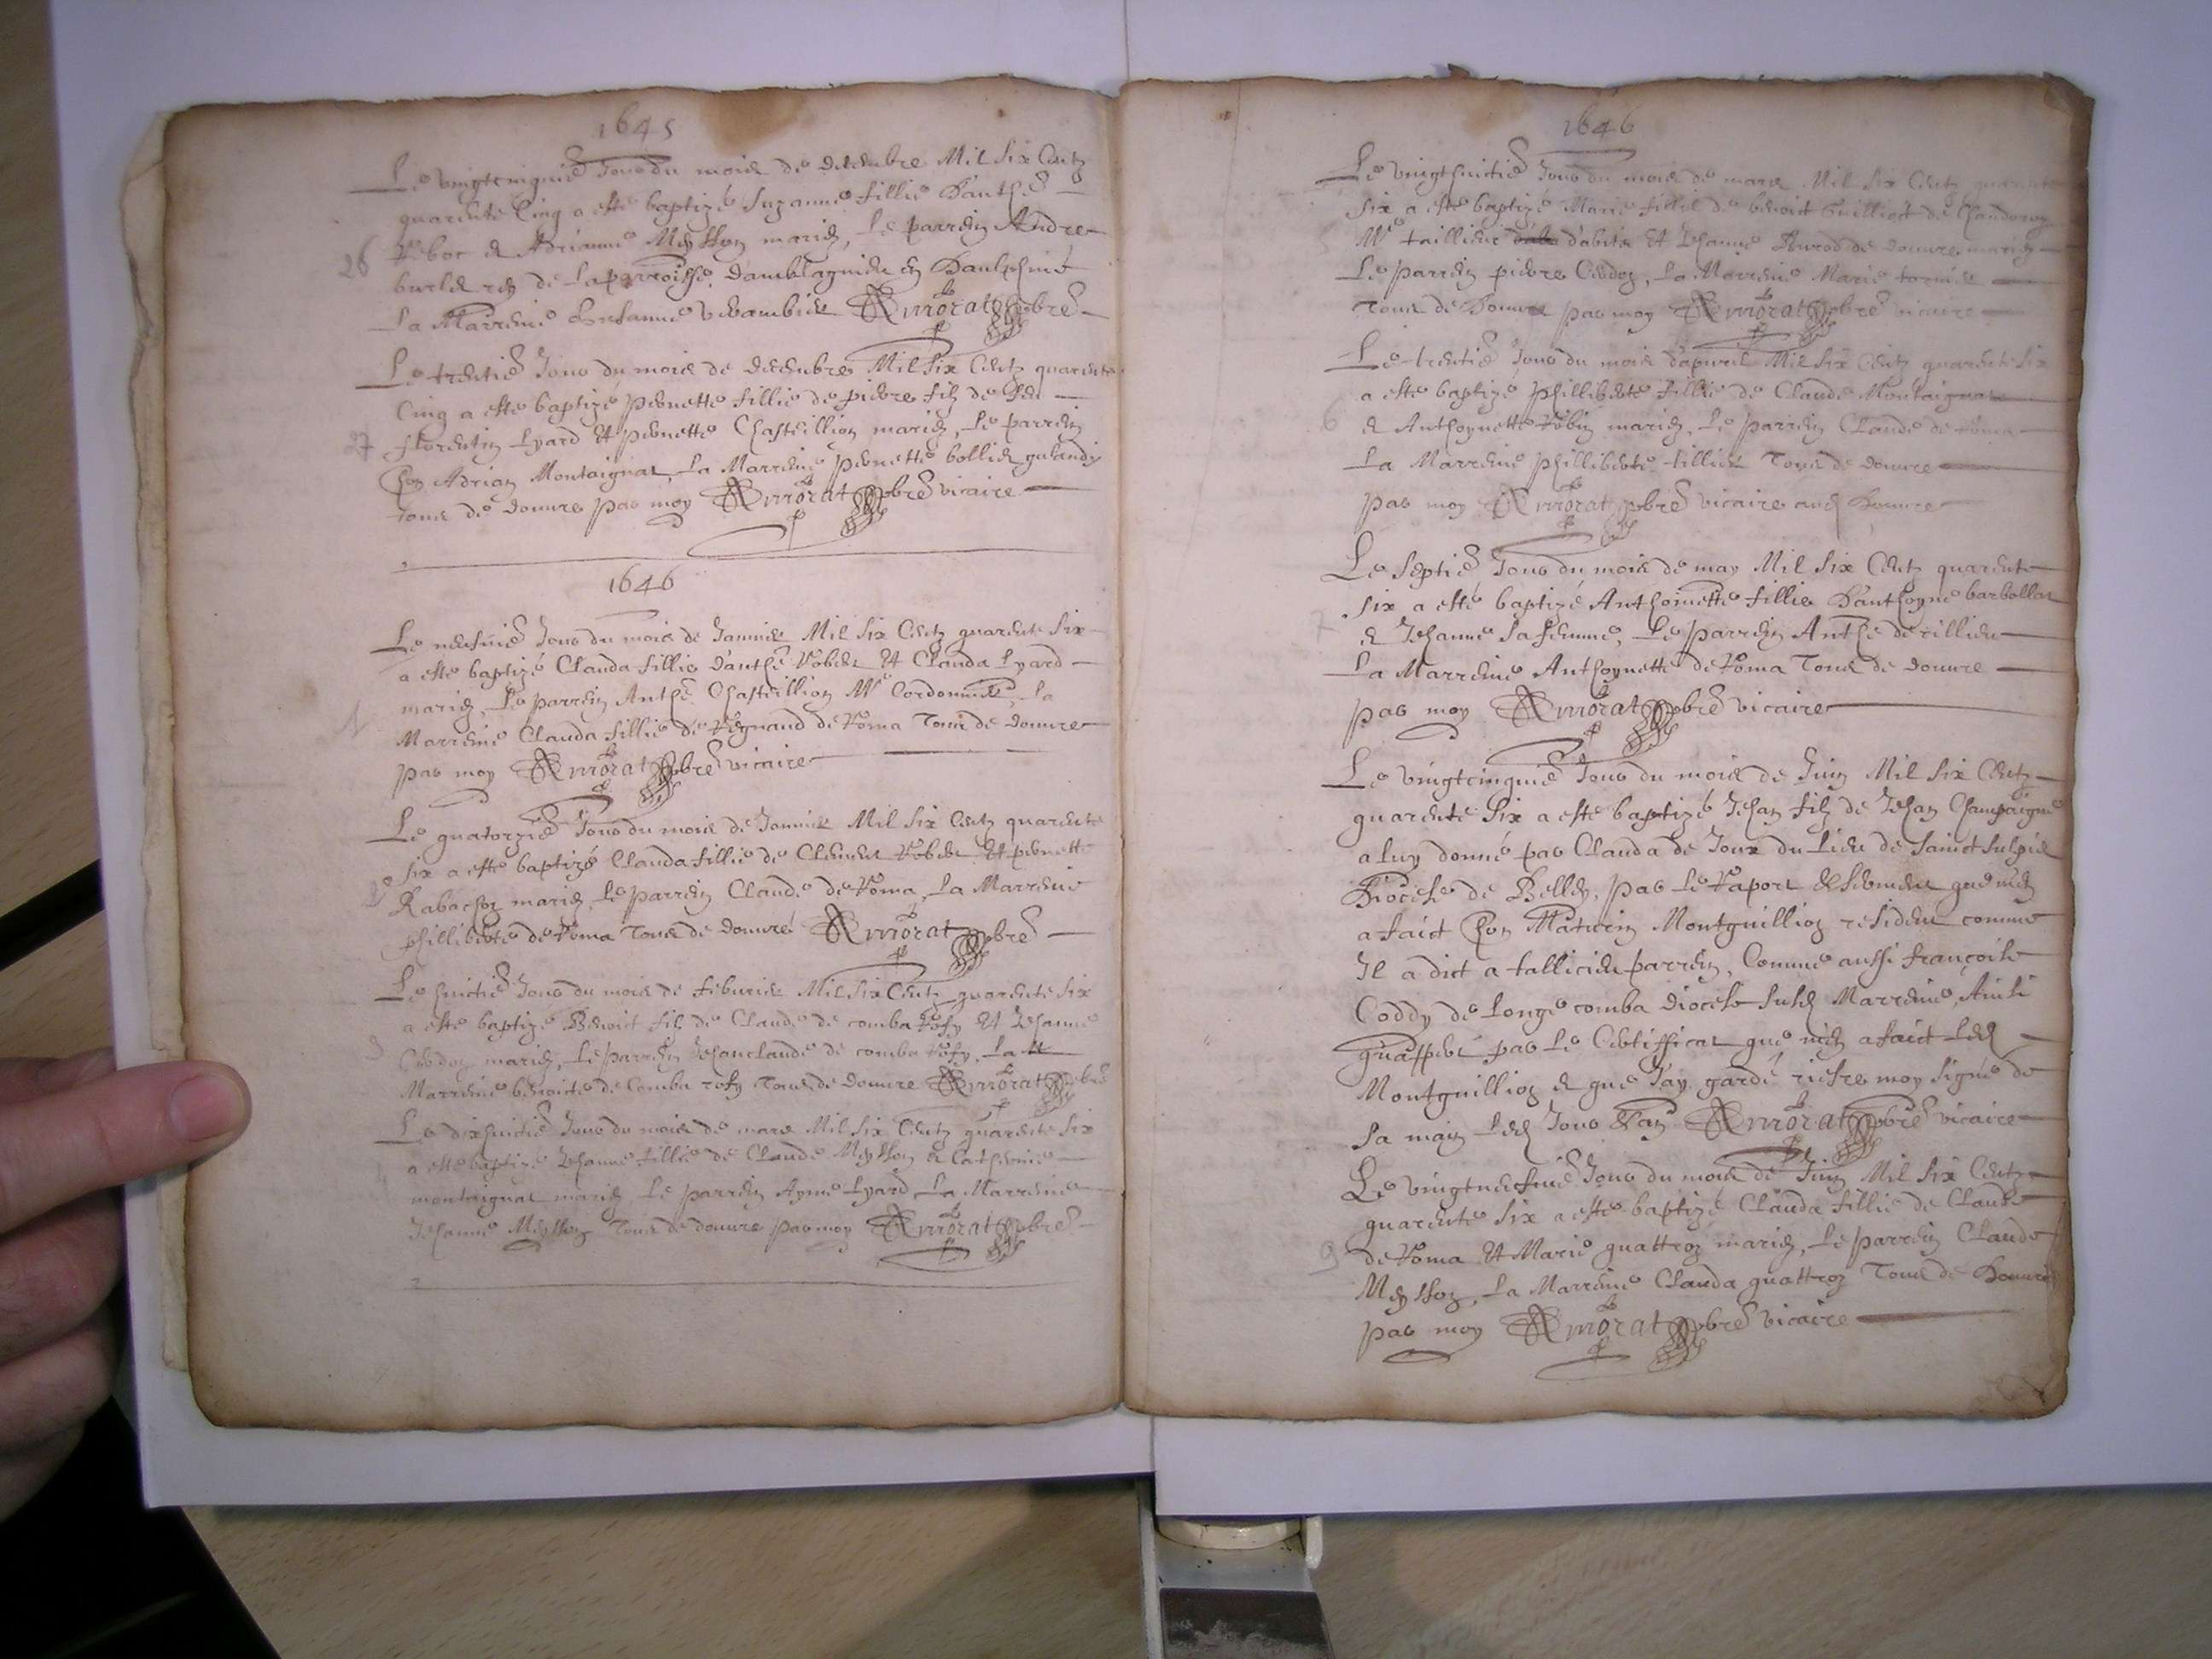 1645
Le vingtcinquie Jour du mois de decembre Mil six Centz
quarente Cinq a esté baptizé Suzanne fillie d'anthe
26
Roboc et Adrianne Meysson mariez, Le parrein Andre
de la parroisse d'amblagnieu en Daulphiné
La Marreine Amorat pbre
Le trentie Jour du mois de decembre Mil six Centz quarente
Cinq a esté baptizé pernette fillie de pierre filz de feu
27
florentin Lyard et pernette Chasteillion mariez, Le parrein
hon Adrian Montaignat, La Marreine pernette bollier
tous de Douvre par moy Amorat pbre vicaire
1646
Le neufvie Jour du mois de Janvier Mil six Centz quarente six
a esté baptizé Clauda fillie d'anthe Robert et Clauda Lyard
mariez, Le parrein Anthe Chasteillion Mr Cordonnier, La
1
Marreine Clauda fillie de Regnaud de Roma Tous de Douvre
par moy Amorat pbre vicaire
Le quatorzie Jour du mois de Janvier Mil six Centz quarente
six a esté baptizé Clauda fillie de Clement Robert et pernette
2
Rabachon mariez, Le parrein Claude de Roma, La Marreine
philliberte de Roma Tous de Douvre Amorat pbre
Le huictie Jour du mois de feburier Mil six Centz quarente six
a esté baptizé Benoict filz de Claude de comba Rofy et Jehanne
3
Credoz mariez, Le parrein Jehanclaude de comba Rofy, La
Marreine benoite de Comba rofy Tous de Douvre Amorat pbre
Le dixhuictie Jour du mois de mars Mil six Centz quarente six
a esté baptizé Jehanne fillie de Claude Meysson et Catherine
montaignat mariez, Le parrein Ayme Lyard, La Marreine
Jehanne Meysson Tous de douvre par moy Amorat pbre
1646
Le vingthuictie Jour du mois de mars Mil six Centz quarente
six a esté baptizé Marie fillie de benoict Guilliot de Chandorey
Mr taillieur d'abits et Jehanne de Douvre mariez
Le parrein pierre Credoz, La Marreine Marie
Tous de Douvre par moy Amorat pbre vicaire
Le trentie Jour du mois d'apvril Mil six Centz quarente six
a esté baptizé phillibeste fillie de Claude Montaignat
6
et Anthoynette Robin mariez, Le parrein Claude de Roma
La Marreine phillibeste Tous de Douvre
par moy Amorat pbre vicaire aud Douvre
Le septie Jour du mois de may Mil six Centz quarente
six a esté baptizé Anthoinette fillie d'anthoyne barbollat
7
et Jehanne sa femme, Le parrein Anthe de rillieu
La Marreine Anthoynette de Roma Tous de Douvre
par moy Amorat pbre vicaire
Le vingtcinquie Jour du mois de Juin Mil six Centz
quarente six a esté baptizé Jehan filz de Jehan Champaigne
a luy donné par Clauda de Joux du lieu de Sainct Sulpis
Diocese de Belley, par Le Raport et serment que m'en
a faict hon Maturin Montguillion resident comme
Il a dict a tallicieu parrein, Comme aussi françoise
Coddy de longe comba Diocese susd Marreine, Ainsi
qu'appert par Le Certifficat que m'en a faict led
Montguillion et que J'ay gardé riere moy signé de
sa main Led Jour et an Amorat pbre vicaire
Le vingtneufvie Jour du mois de Juin Mil six Centz
quarente six a esté baptizé Clauda fillie de Claude
9
de Roma et Marie quattroz mariez, Le parrein Claude
Meysson, La Marreine Clauda quattroz Tous de Douvre
par moy Amorat pbre vicaire